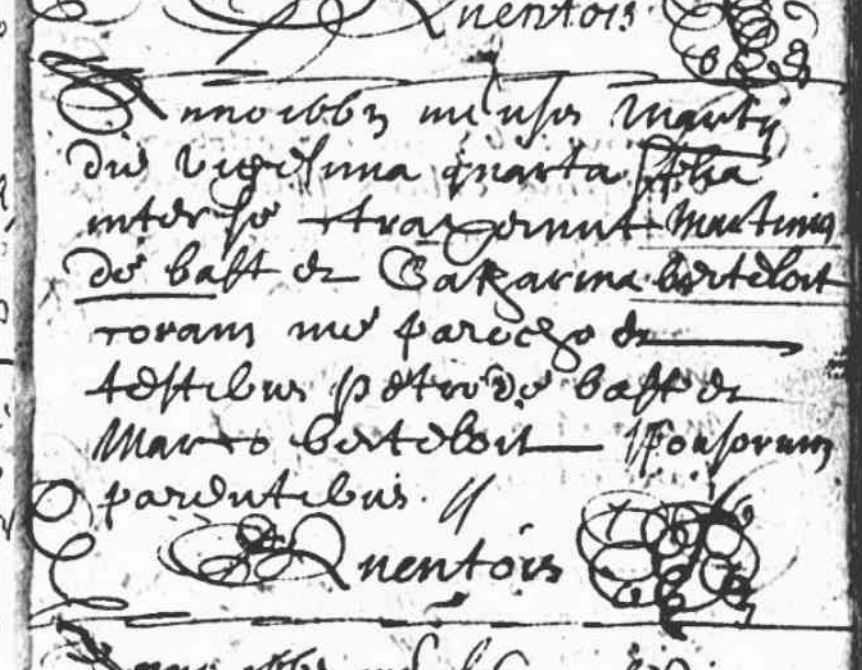 Quentois
Anno 1662 mensis Martij
die vigesima quarta sp͠lia
inter se contraxerunt Martinus
de bast et Catharina berteloit
coram me parocho et
testibus petro de bast et
Marco berteloit sponsorum
parentibus. //
Quentois